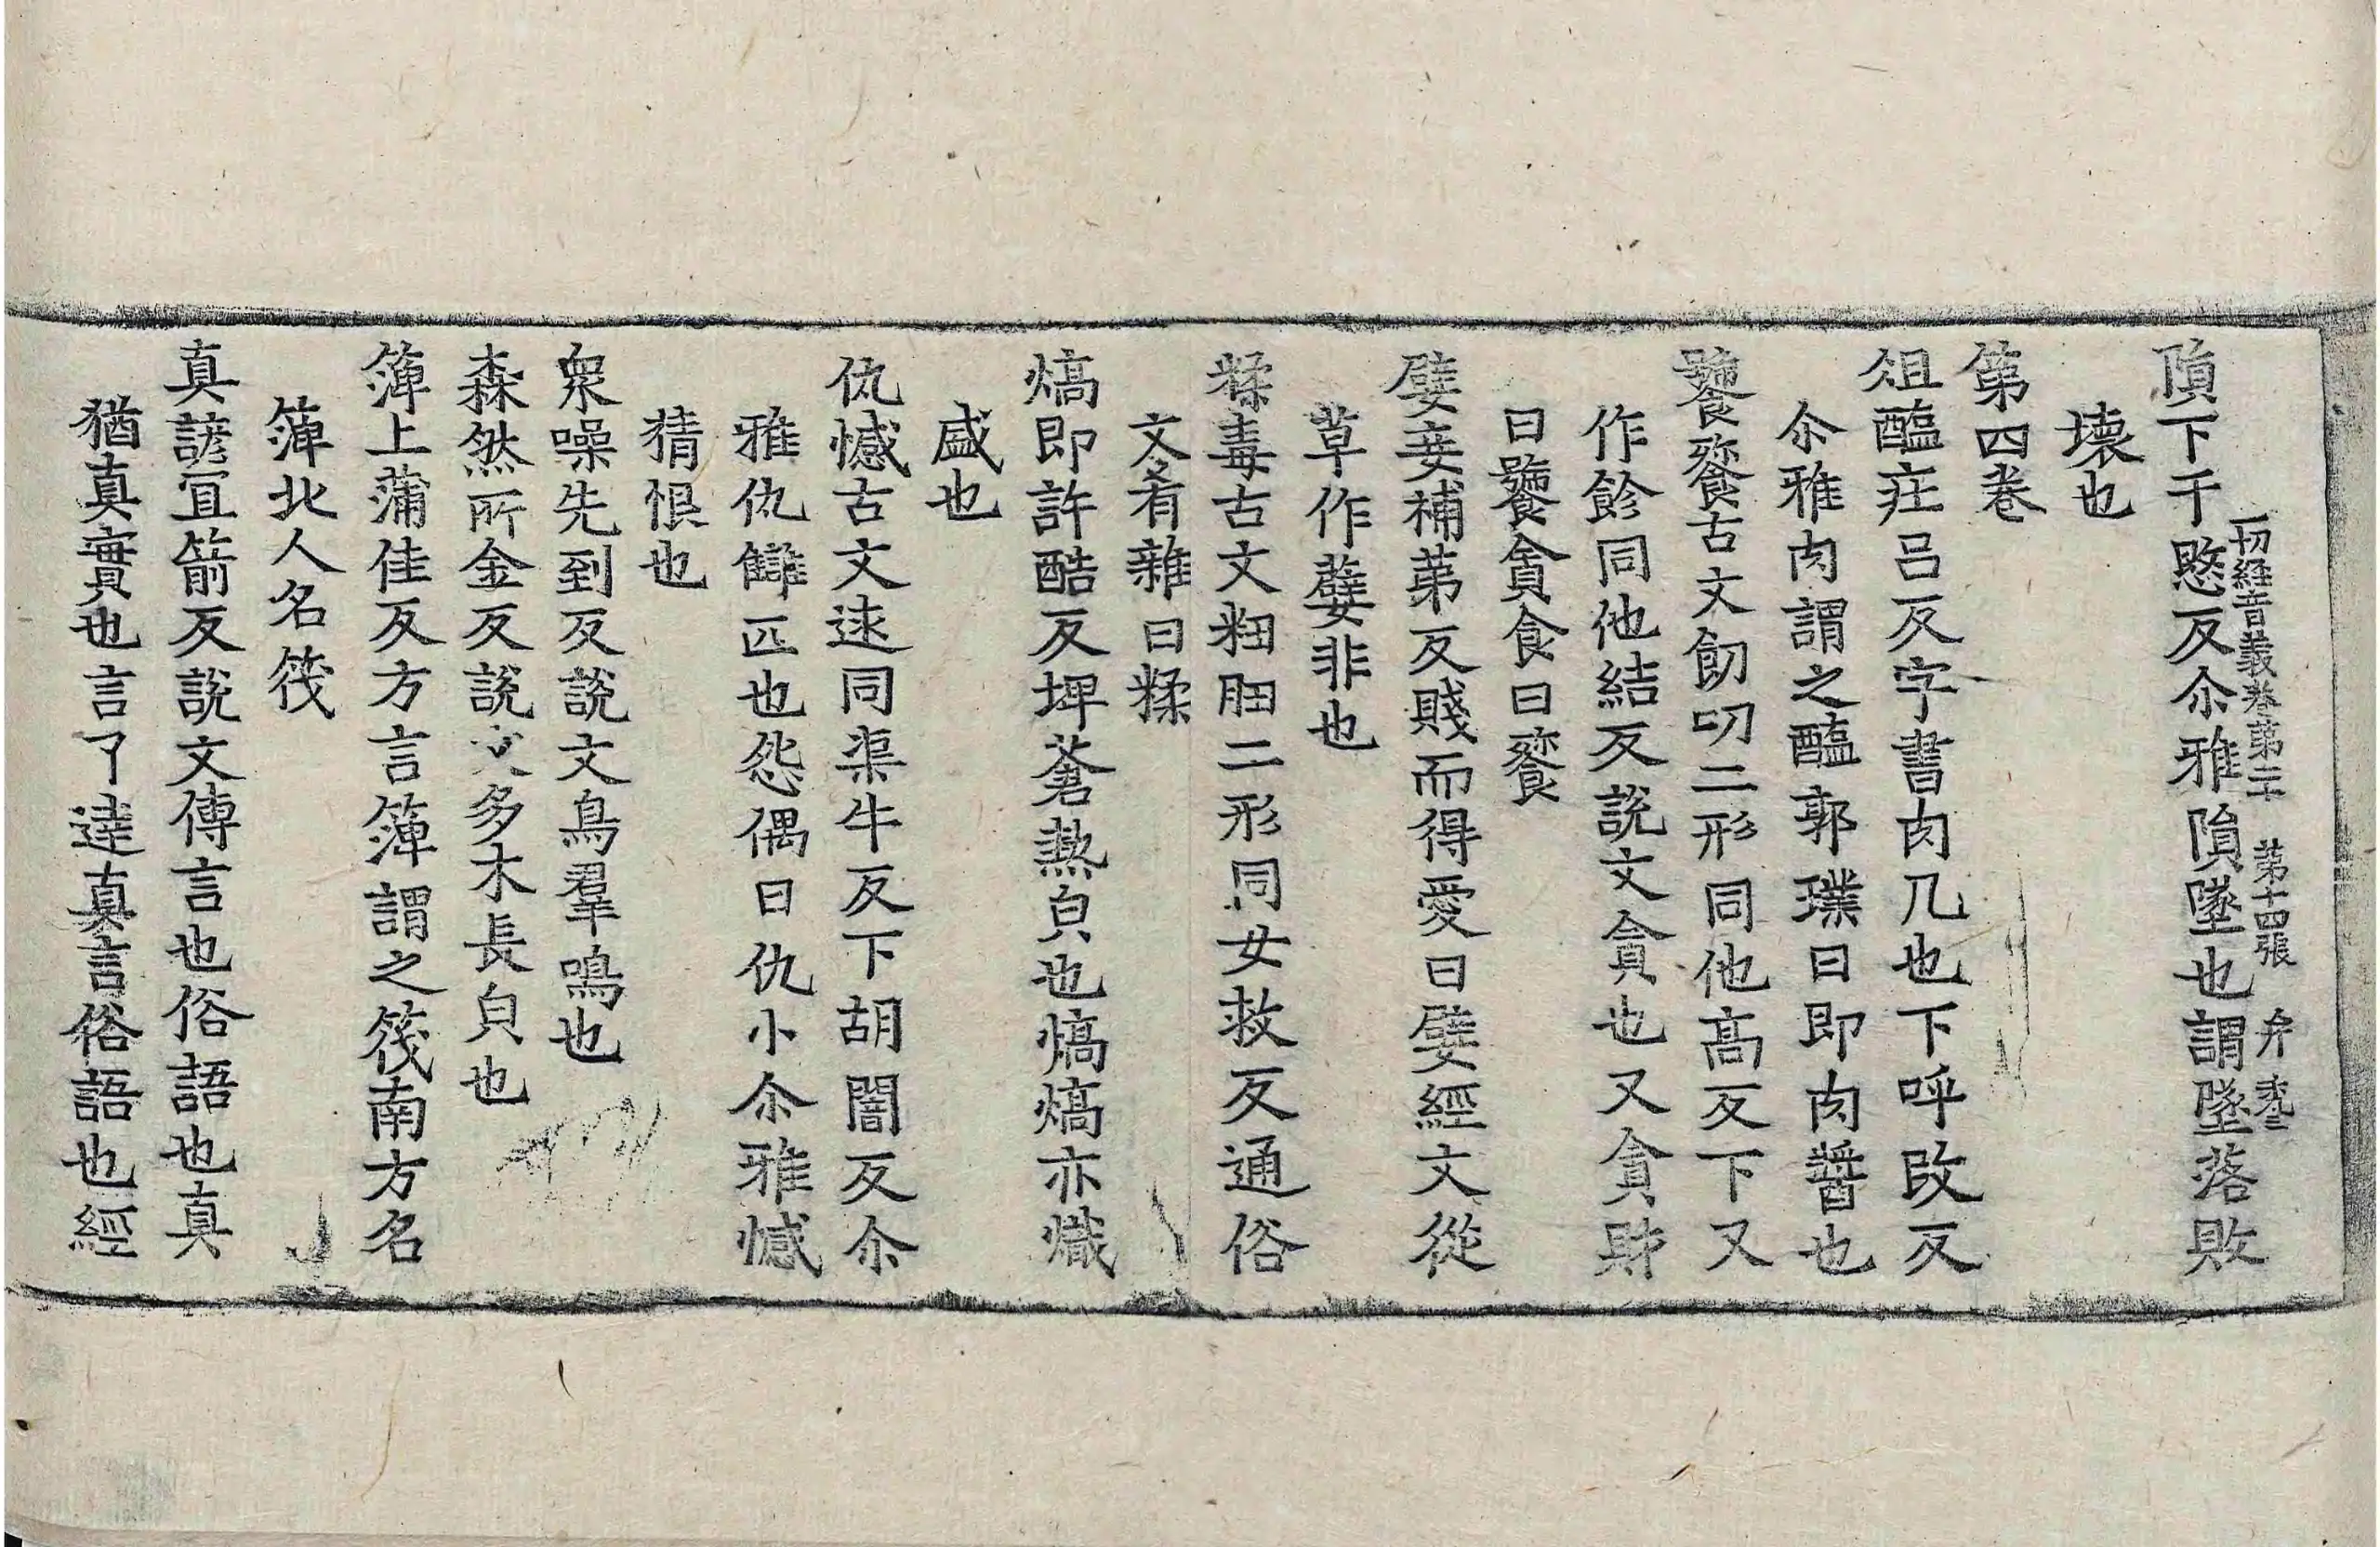 隕下于愍反尒雅隕墜也謂墜落敗
一切經音義卷第二十 第十四張 弁
壞也
第四卷
俎醢疘吕反字書肉几也下呼改反
尒雅肉謂之醢郭璞曰即肉醬也
饕餮古文飻叨二形同他高反下又
作飻同他結反說文貪也又貪財
曰饕貪食曰餮
嬖妾補苐反賤而得愛曰嬖經文從
草作薜非也
糅毒古文粈䏔二形同女救反通俗
文肴雜曰糅
熇即許酷反埤蒼熱皃也熇熇亦熾
盛也
仇憾古文逑同渠牛反下胡闇反尒
雅仇讎匹也怨偶曰仇小尒雅憾
猜恨也
衆噪先到反說文鳥羣鳴也
森然所金反說文多木長皃也
箄上蒲佳反方言箄謂之筏南方名
箄北人名筏
真諺宜箭反說文傳言也俗語也真
猶真實也言了達真言俗語也經